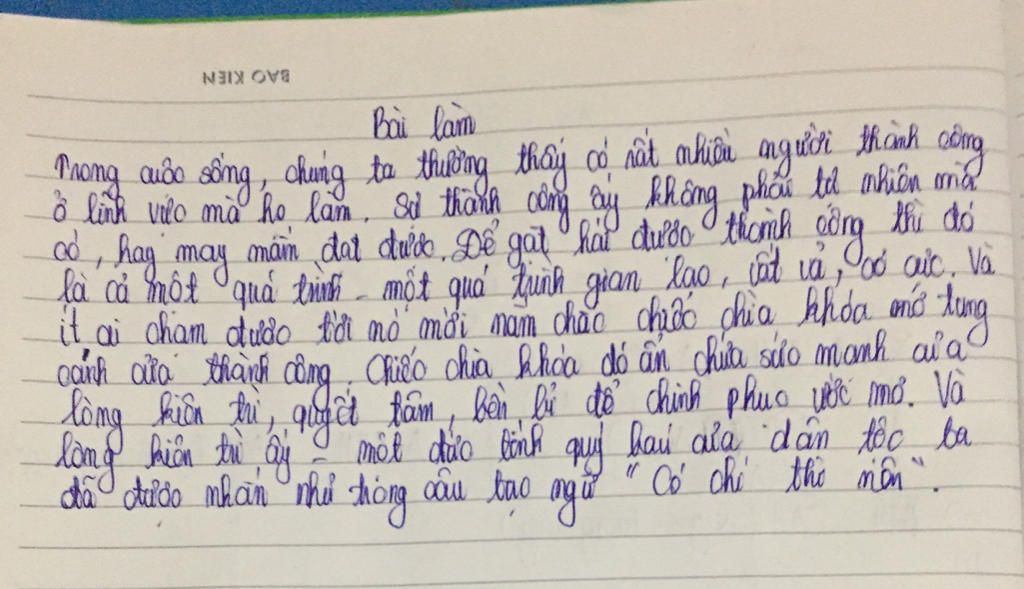 BAO KIEN
Bài làm
Trong cuộc sống, chúng ta thường thấy có rất nhiều người thành công
ở lĩnh vực mà họ làm. Sự thành công ấy không phải tự nhiên mà
có, hay may mắn đạt được. Để gặt hái được thành công thì đó
là cả một quá trình - một quá trình gian lao, vất vả, cơ cực. Và
ít ai chạm được tới nó mới nắm chắc chiếc chìa khóa mở tung
cánh cửa thành công. Chiếc chìa khóa đó ẩn chứa sức mạnh của
lòng kiên trì, quyết tâm, bền bỉ để chinh phục ước mơ. Và
lòng kiên trì ấy - một đức tính quý báu của dân tộc ta
đã được nhắn nhủ trong câu tạo ngữ "Có chí thì nên".